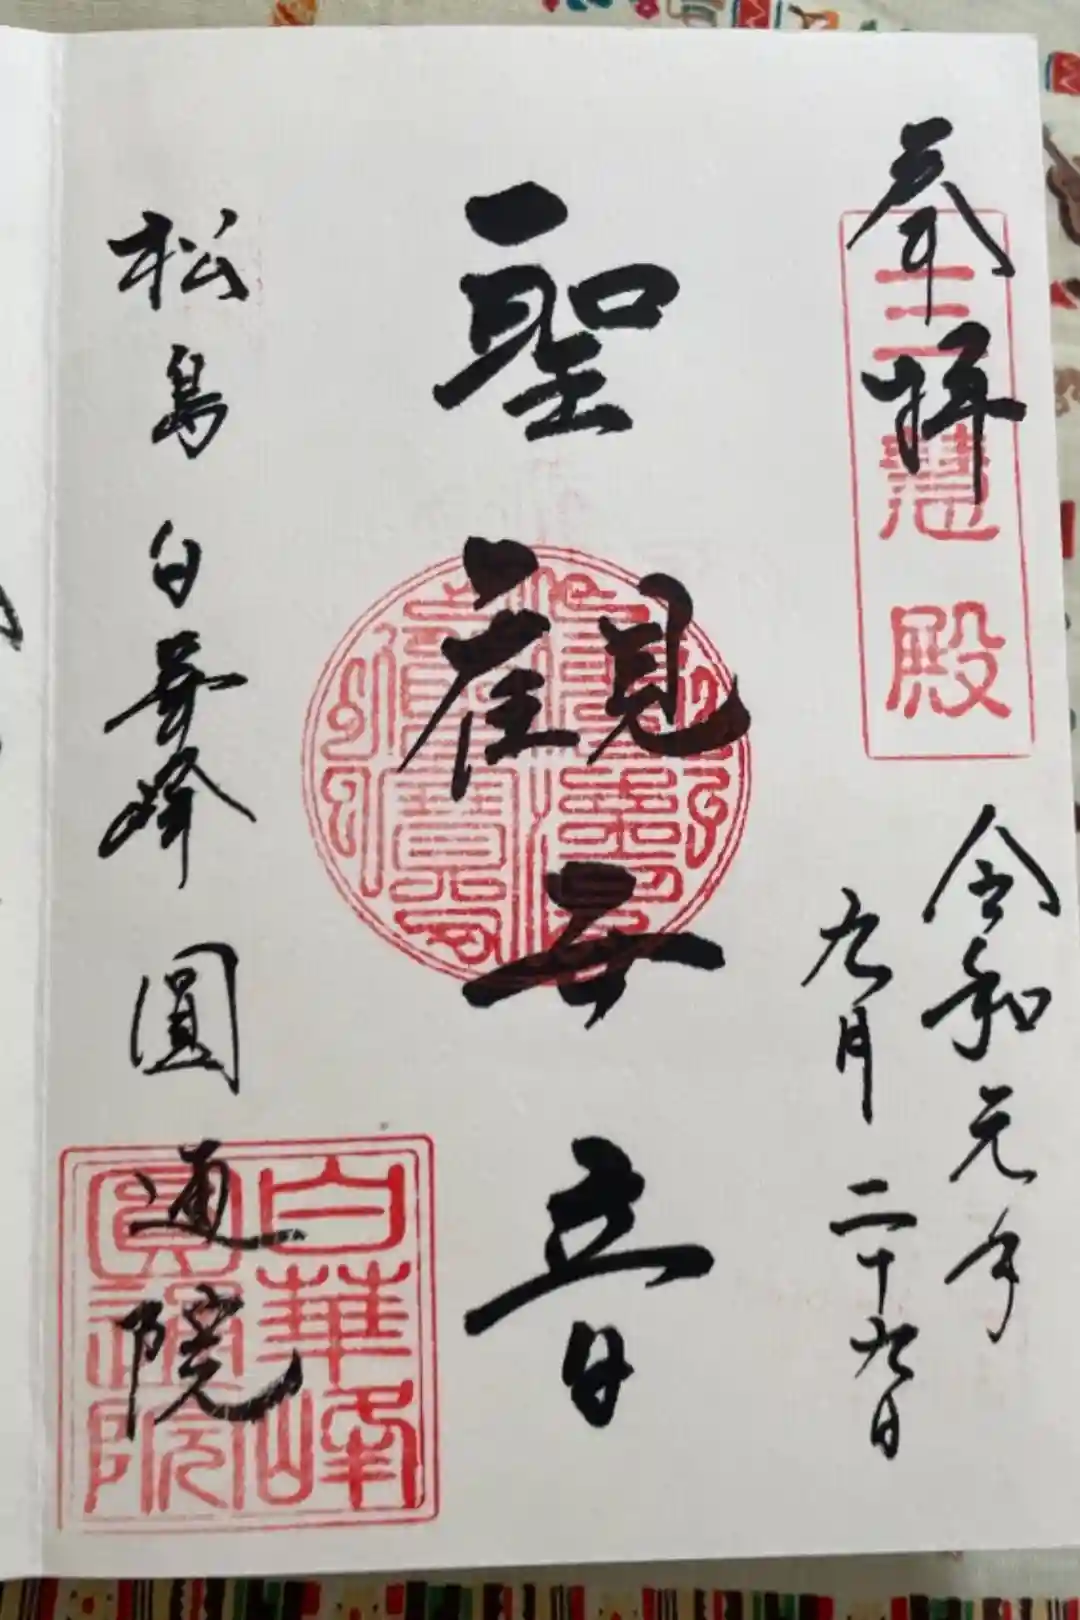 奉拝
三慧殿
令和元年
九月二十九日
聖觀世音
松島白華峰圓通院
白華峰
圓通院